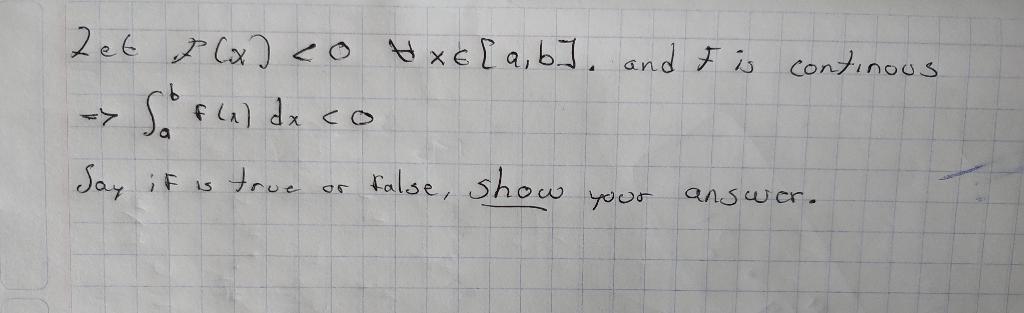 Let f(x) < 0 ∀ x ∈ [a,b]. and f is continous
=> ∫ₐᵇ f(x) dx < 0
Say if is true or false, show your answer.